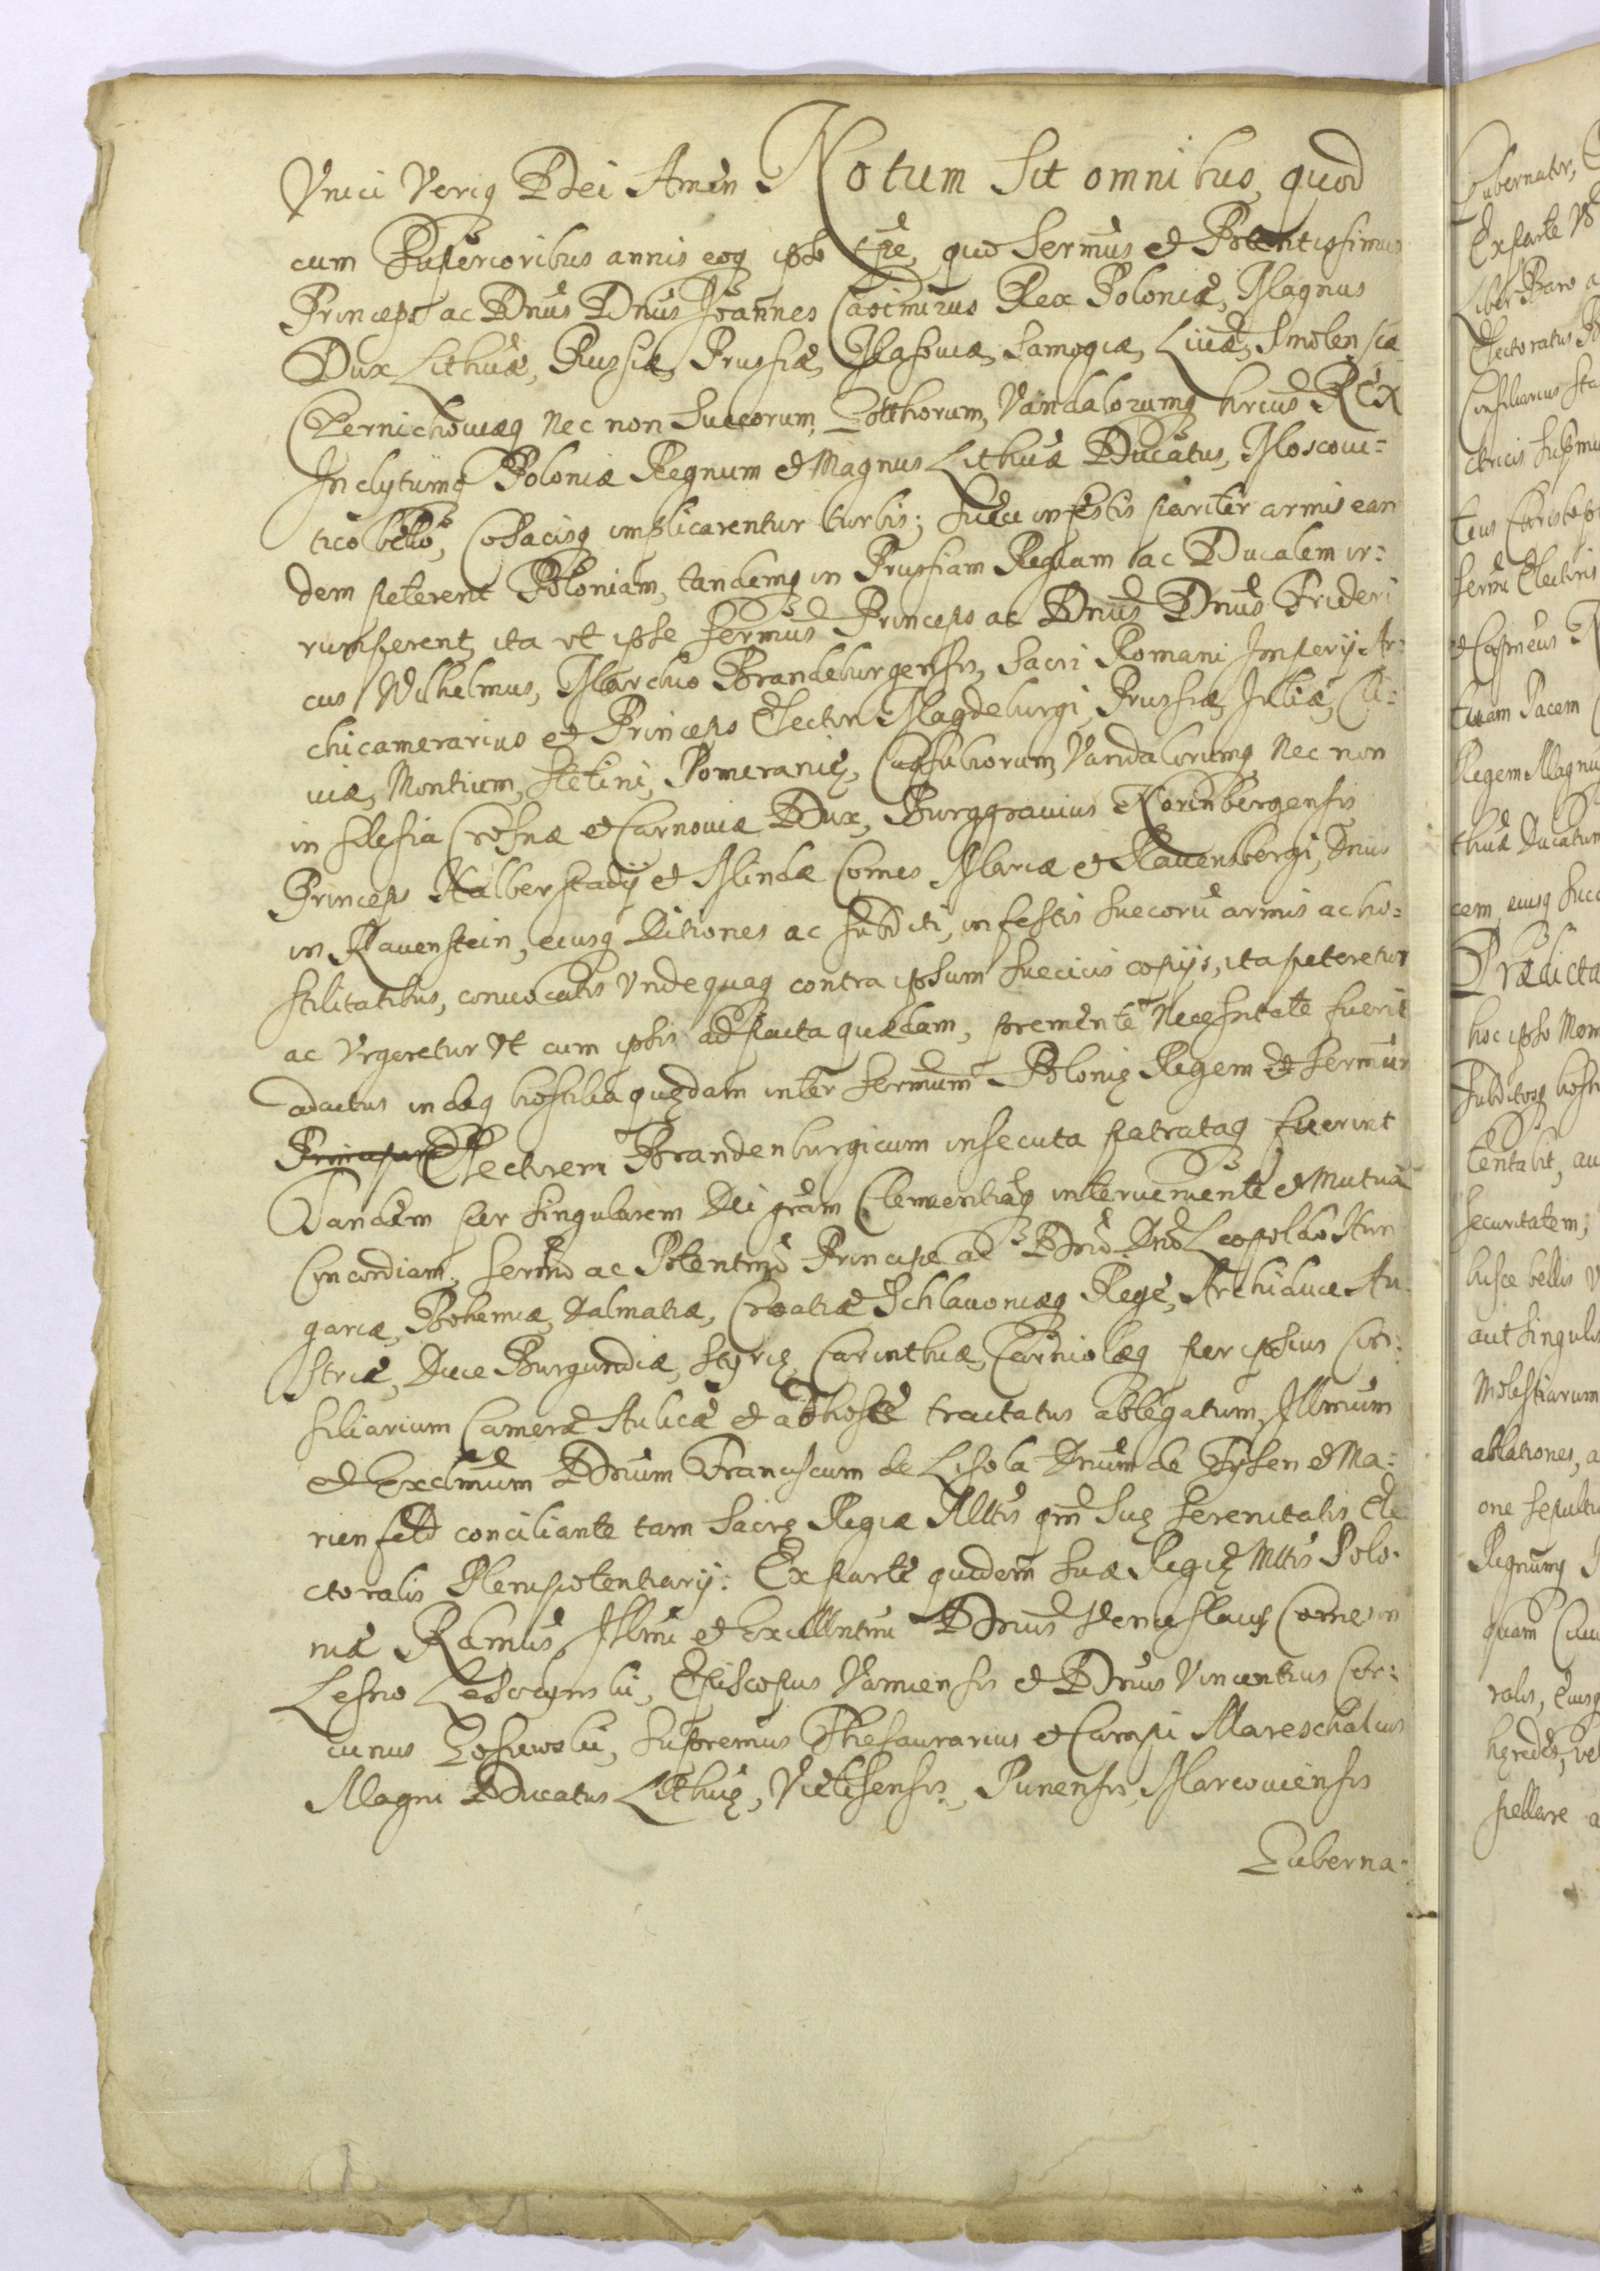 Vnici Veriq Dei Amen Notum Sit omnibus, quod
cum Superioribus annis eoq ipso tpe, quo Sermus et Potentissimus
Princeps ac Dnus Dnus Joannes Casimirus Rex Poloniæ, Magnus
Dux Lithuæ, Russiæ, Prussiæ, Masouiæ, Samogiæ, Liuæ, Smolensiæ
Czernichouiæq Nec non Suecorum, Gotthorum, Vandalorumq hrius REX
Inclytumq Poloniæ Regnum et Magnus Lithuæ Ducatus, Moscoui-
tico bello, Cosacisq implicarentur turbis; Sueci infestis pariter armis ean
dem peterent Poloniam, tandemq in Prussiam Regiam ac Ducalem ir-
rumperent, ita vt ipse Sermus Princeps ac Dnus Dnus Frideri
cus Wilhelmus, Marchio Brandeburgensis, Sacri Romani Imperij Ar-
chicamerarius et Princeps Elector Magdeburgi, Prussiæ, Juliæ, Cli-
uiæ, Montium, Stetini, Pomeranię, Cassubiorum, Vandalorumq Nec non
in Silesia Crosnæ et Carnouiæ Dux, Burggrauius Norinbergensis
Princeps Halberstadij et Mindæ Comes Marciæ et Rauensbergi, Dnus
in Rauenstein, eiusq Ditiones ac Subditi, infestis Suecorū armis ac ho-
stilitatibus, conuocatis Vndequaq contra ipsum Suecicis copijs, ita peteretur
ac Vrgeretur Vt cum ipsis ad pacta quædam, premente Necessitate fuerit
adactus indeq hostilia quędam inter Sermum Polonię Regem et Sermum
Principem Electorem Brandenburgicum insecuta patrataq fuerint
Tandem per singularem Dei grām Clementiāq interueniente et Mutuā
Concordiam, Sermo ac Potentmo Principe ac Dno Dno Leopoldo Hun
gariæ, Bohemiæ, Dalmatiæ, Croatiæ Schlauoniæq Rege, Archiduce Au-
striæ, Duce Burgundiæ, Styrię, Carinthiæ, Carniolæq per ipsius Con-
siliarium Cameræ Aulicæ et ad hosce tractatus ablegatum, Illmum
et Exclmum Dnum Franciscum de Lisola Dnum de Tysen et Ma-
rienfeld conciliante tam Sacrę Regiæ Mttis qm Suę Serenitatis Ele
ctoralis Plenipotentiarij: Ex parte quidem Suæ Regię Mttis Polo-
niæ Rdmus, Illmi et Excellntmi Dnus Venceslaus Comes in
Lesno Lesczynski, Episcopus Varmiensis et Dnus Vincentius Cor-
uinus Gosiewski, Supremus Thesaurarius et Campi Mareschalcus
Magni Ducatus Lithuę, Vielisensis, Punensis, Marcouiensis
Guberna-
Gubernator,
Ex parte
Liber Baro a
Electoratus
Consiliarius Sta
ctricis Supmu
teus Christoph
Sermi Electoris
tuam Pacem
Regem Magnu
thuæ Ducatum
cem eiusq Succ
Prædicta
hoc ipso Mom
Subditosq hosti
tentabit, au
securitatem;
hisce bellis V
aut singulis
Molestiarum
ablationes, a
one sepulta
Regnumq
quam
ralis, Eiusq
hęredes, ve
pellere a